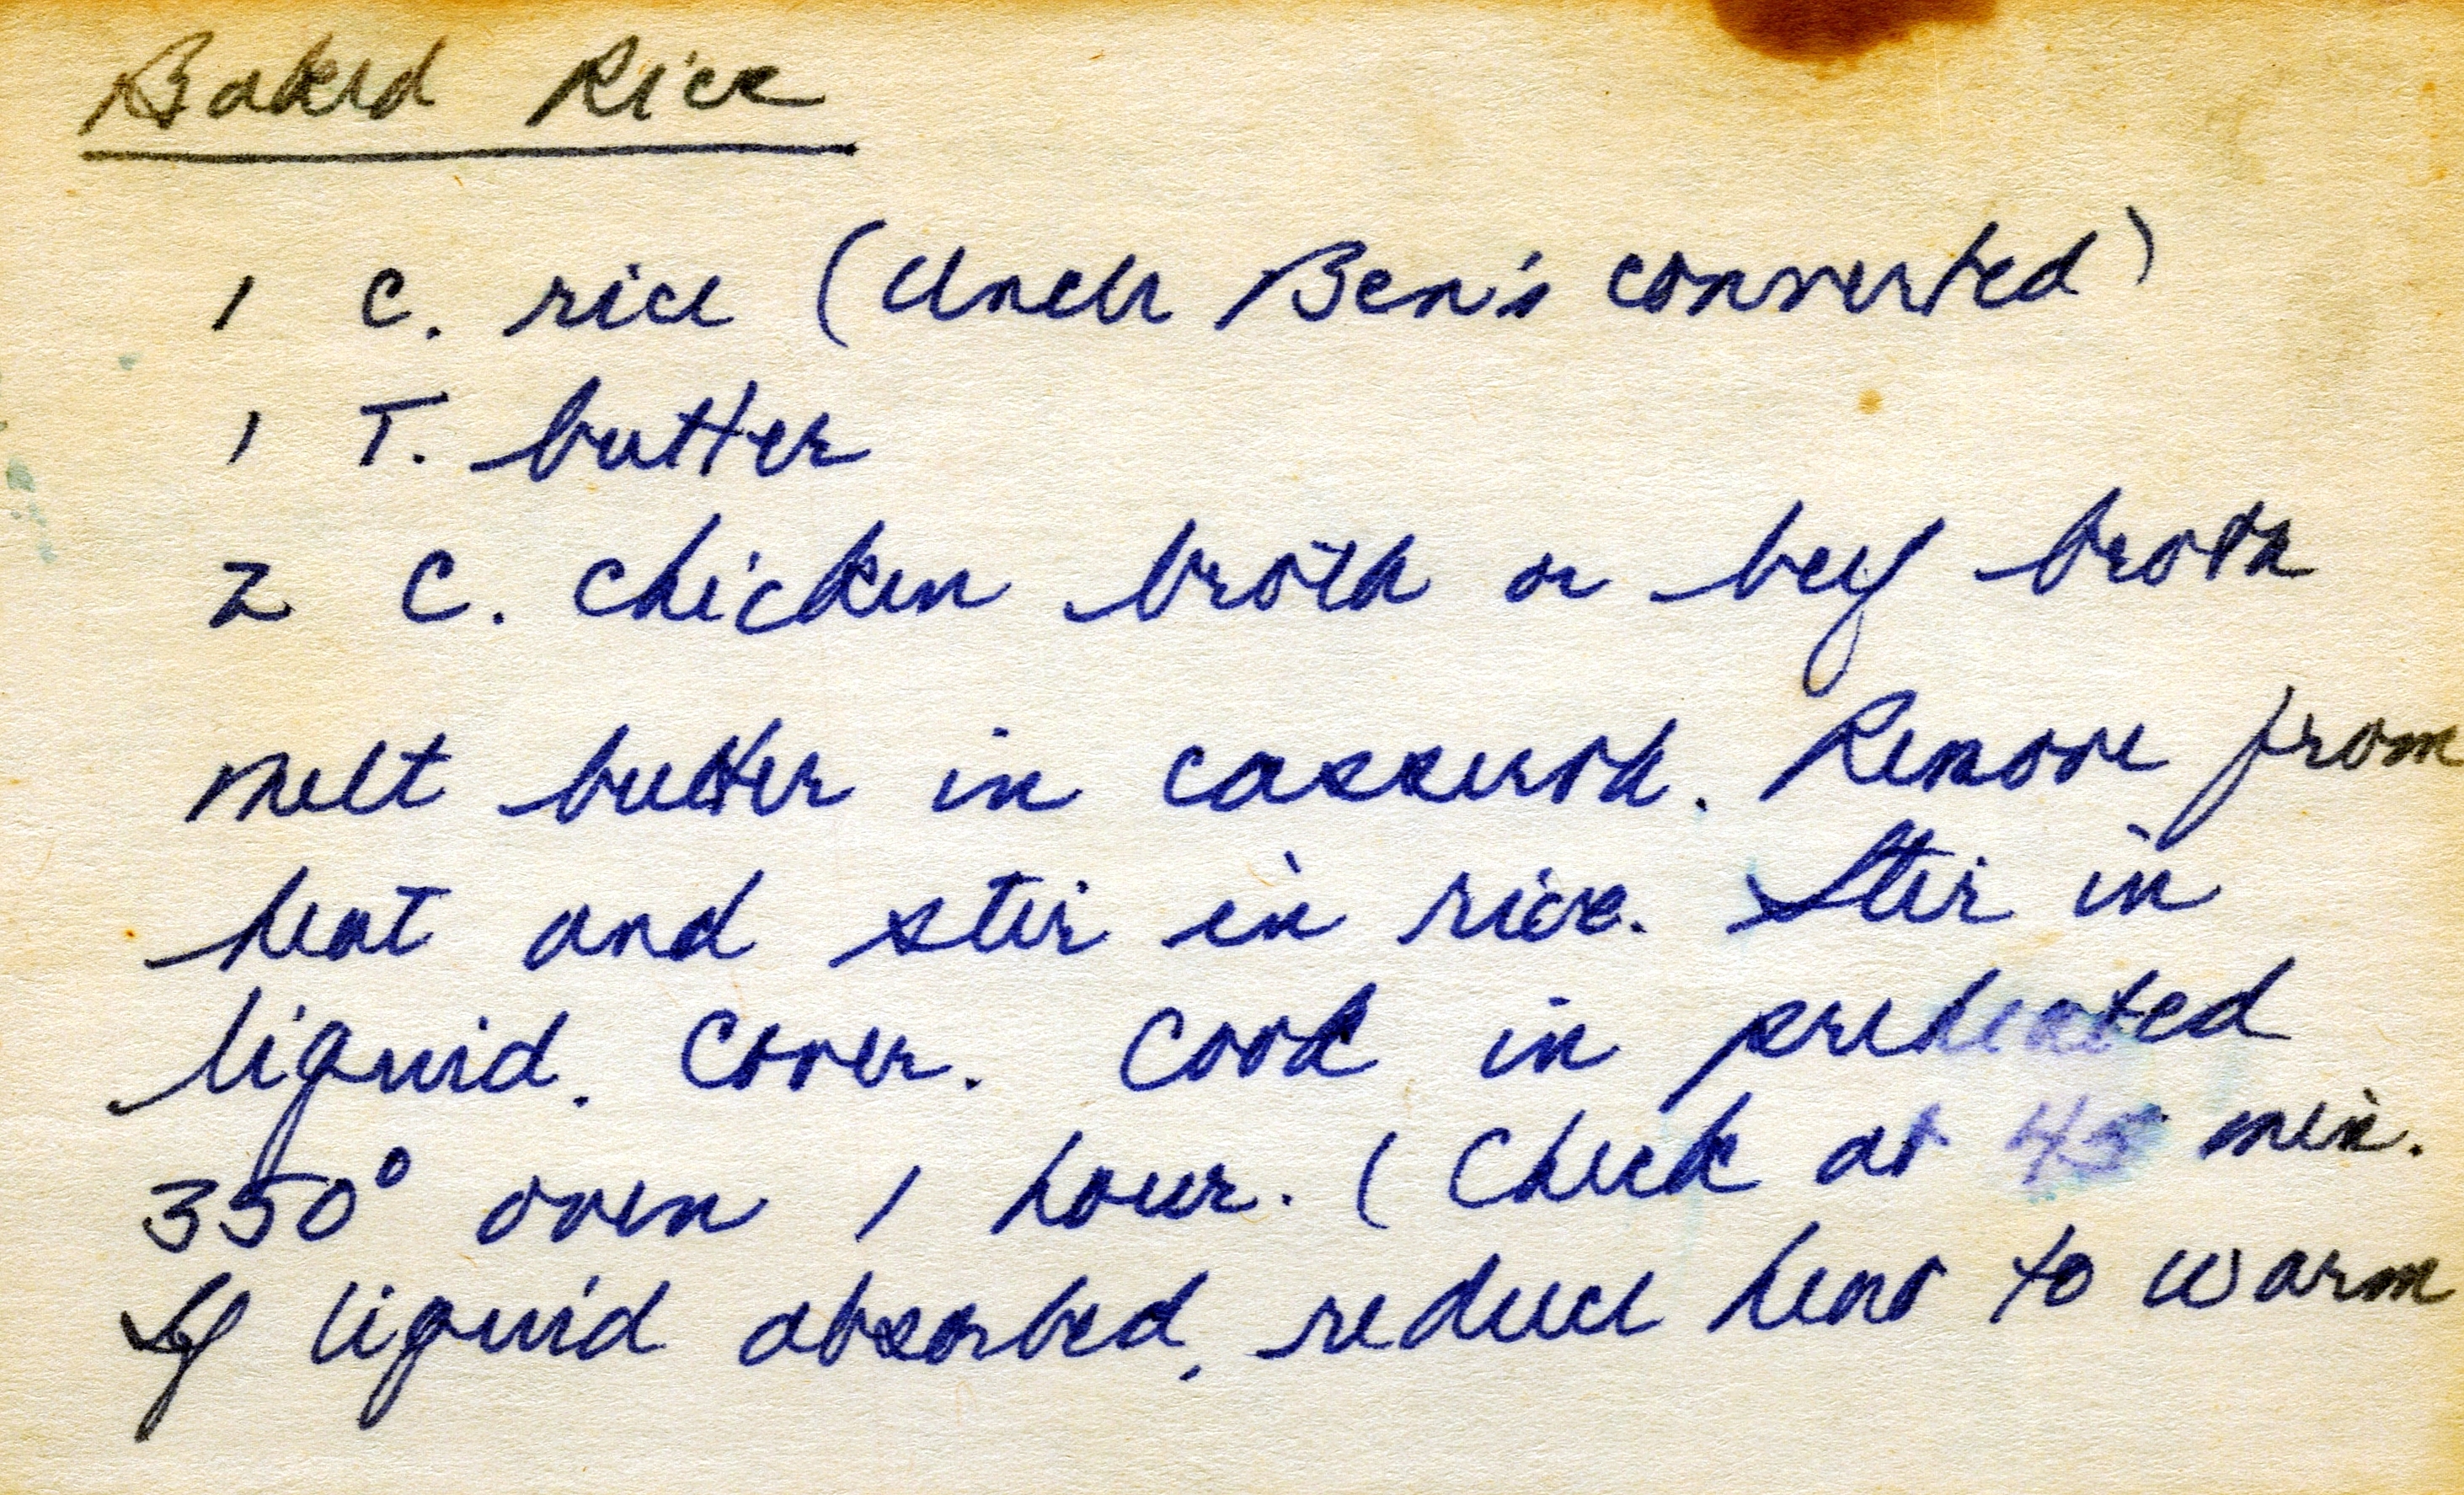 Baked Rice
1 C. rice (Uncle Ben's converted)
1 T. butter
2 C. chicken broth or beef broth
Melt butter in casserole. Remove from
heat and stir in rice. Stir in
liquid. Cover. Cook in preheated
350° oven 1 hour. (Check at 45 min.
If liquid absorbed, reduce heat to warm